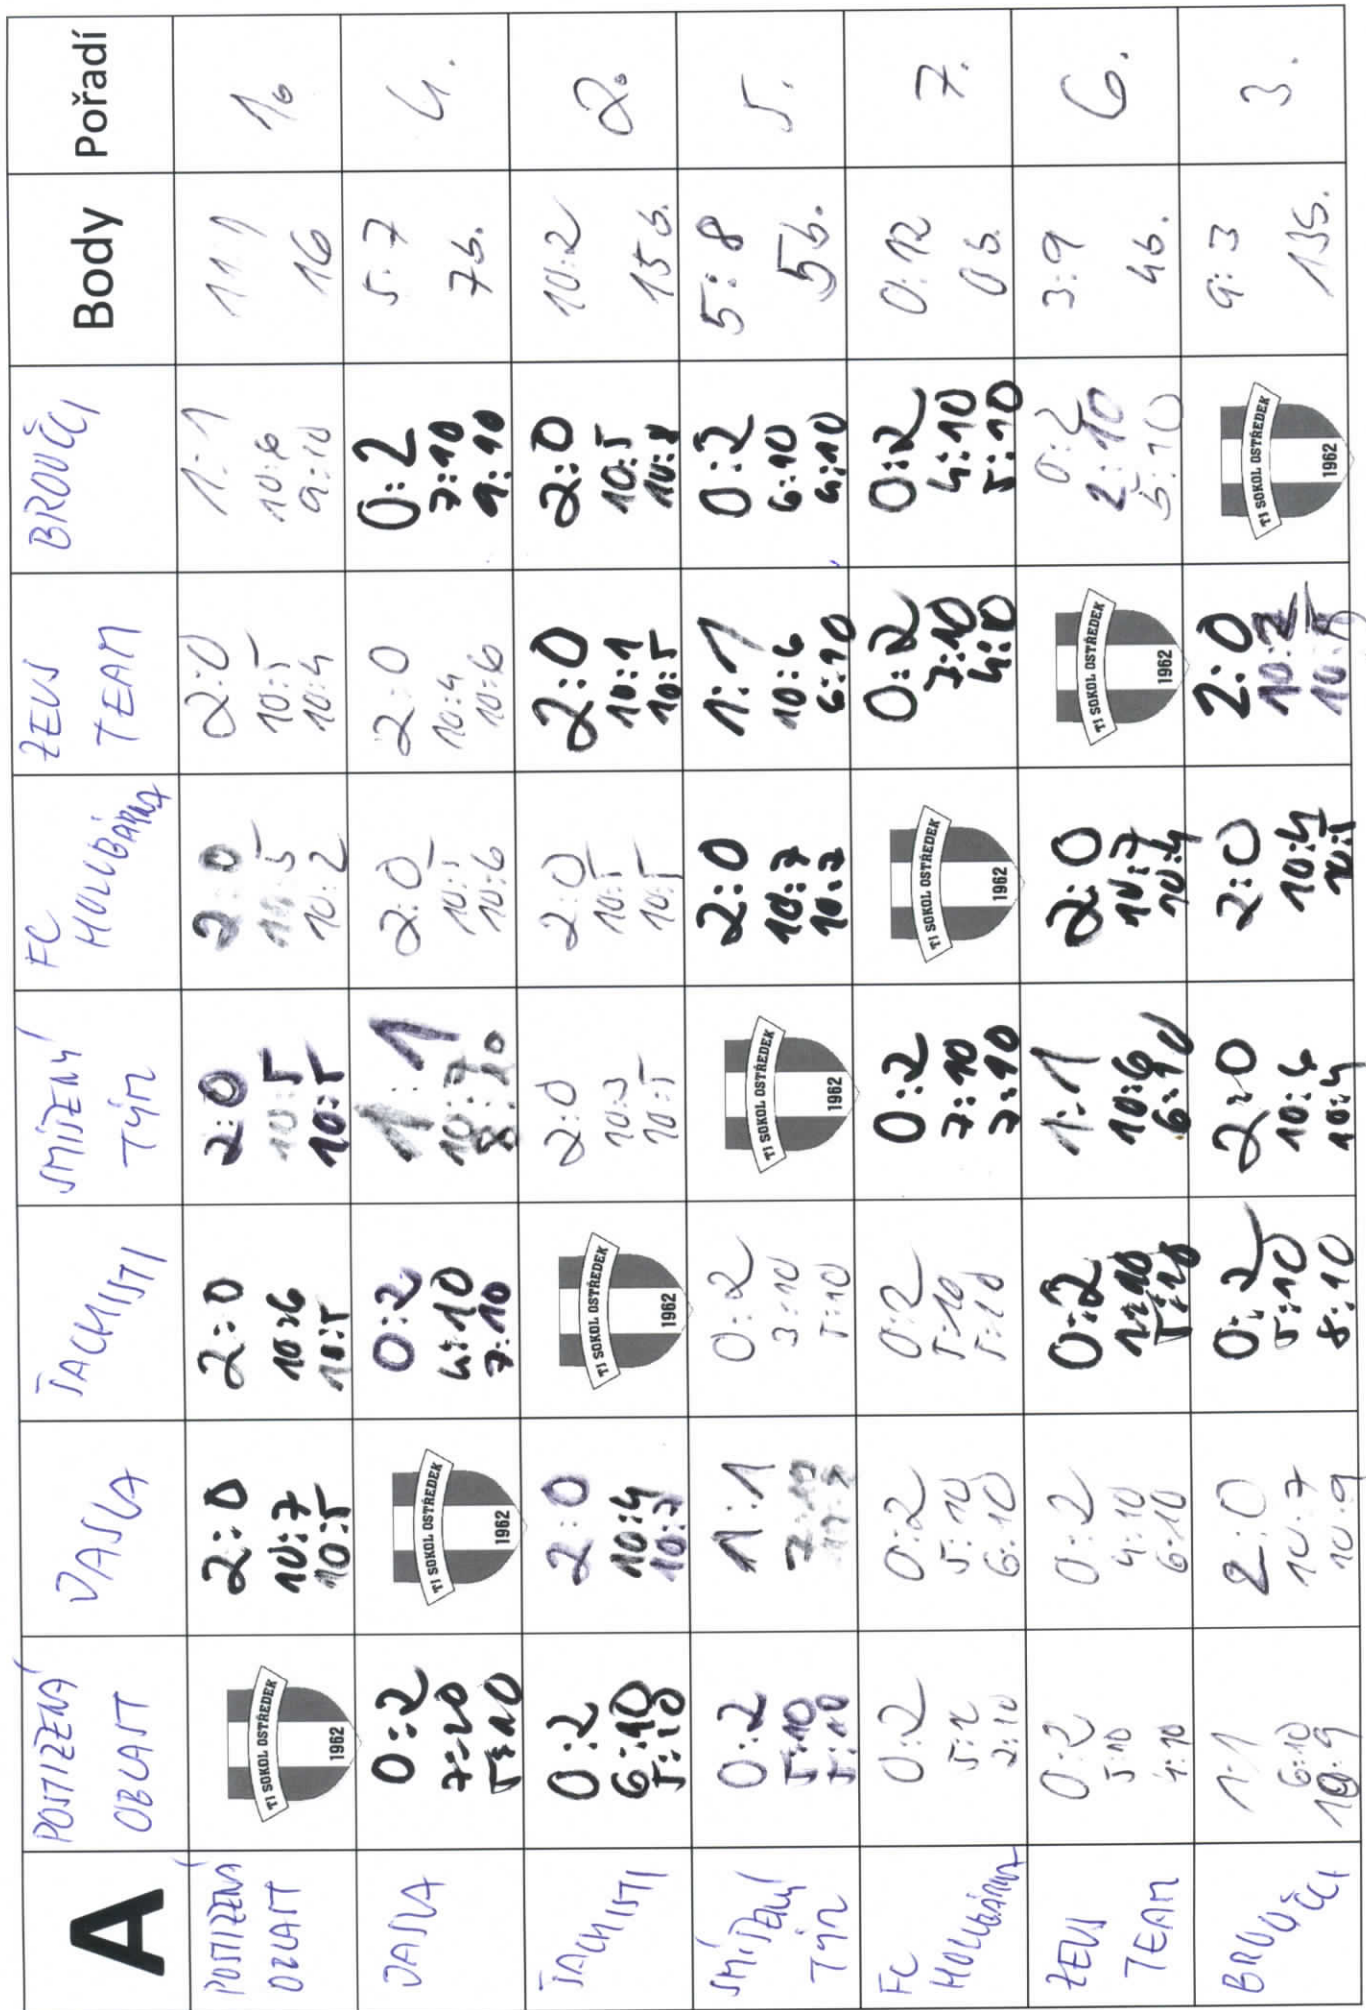 A
POSTIŽENÁ
OBLAST
JASLA
ŠACHISTI
SMÍŠENÝ
TÝM
FC
HOLUBÁRNA
ZEUS
TEAM
BROUČCI
Body
Pořadí
POSTIŽENÁ
OBLAST
TJ SOKOL OSTŘEDEK
1962
2:0
10:7
10:5
2:0
10:6
10:5
2:0
10:5
10:5
2:0
10:5
10:2
2:0
10:5
10:4
1:1
10:6
9:10
11:1
16
1.
JASLA
0:2
7:10
5:10
TJ SOKOL OSTŘEDEK
1962
0:2
4:10
7:10
1:1
10:7
8:10
2:0
10:5
10:6
2:0
10:4
10:6
0:2
7:10
9:10
5:7
7b.
4.
ŠACHISTI
0:2
6:10
5:10
2:0
10:4
10:7
TJ SOKOL OSTŘEDEK
1962
2:0
10:3
10:5
2:0
10:5
10:5
2:0
10:1
10:5
2:0
10:5
10:8
10:2
15b.
2.
SMÍŠENÝ
TÝM
0:2
5:10
5:10
1:1
7:10
TJ SOKOL OSTŘEDEK
1962
0:2
3:10
5:10
2:0
10:7
10:7
1:1
10:6
6:10
0:2
6:10
4:10
5:8
5b.
5.
FC
HOLUBÁRNA
0:2
2:10
0:2
5:10
6:10
0:2
5:10
5:10
0:2
7:10
7:10
TJ SOKOL OSTŘEDEK
1962
0:2
7:10
0:2
4:10
5:10
0:12
0b.
7.
ZEUS
TEAM
0:2
5:10
4:10
0:2
4:10
6:10
0:2
1:10
5:10
1:1
10:6
6:10
2:0
10:7
10:4
TJ SOKOL OSTŘEDEK
1962
0:2
2:10
5:10
3:9
4b.
6.
BROUČCI
1:1
6:10
10:9
2:0
10:7
10:9
0:2
5:10
8:10
2:0
10:6
10:4
2:0
10:4
10:5
2:0
10:2
10:5
TJ SOKOL OSTŘEDEK
1962
9:3
13b.
3.